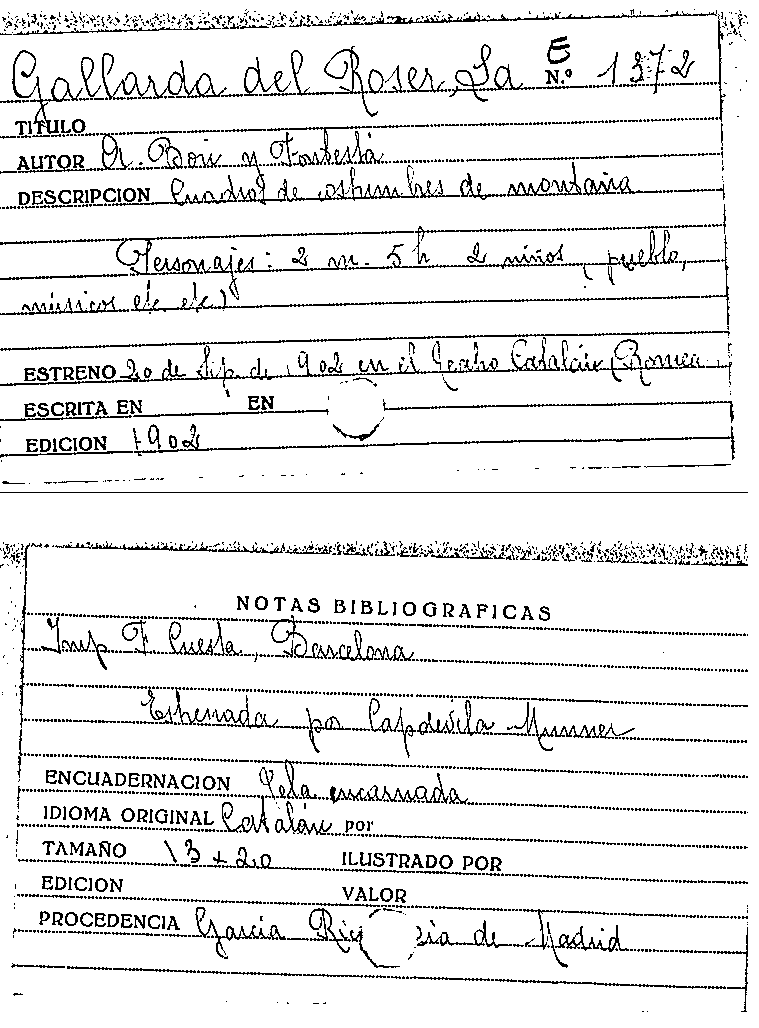 Gallarda del Roser, La E N.º 1372
TITULO
AUTOR A. Bori y Fontestá
DESCRIPCION Cuadro de costumbres de montaña
Personajes: 2 m. 5 h 2 niños, (pueblo,
músicos etc. etc.)
ESTRENO 20 de Sep. de 1902 en el Teatro Catalán (Romea
ESCRITA EN EN
EDICION 1902
NOTAS BIBLIOGRAFICAS
Imp F Cuesta, Barcelona
Estrenada por Capdevila Munner
ENCUADERNACION Tela encarnada
IDIOMA ORIGINAL Catalán por
TAMAÑO 13 x 20 ILUSTRADO POR
EDICION VALOR
PROCEDENCIA García de Madrid